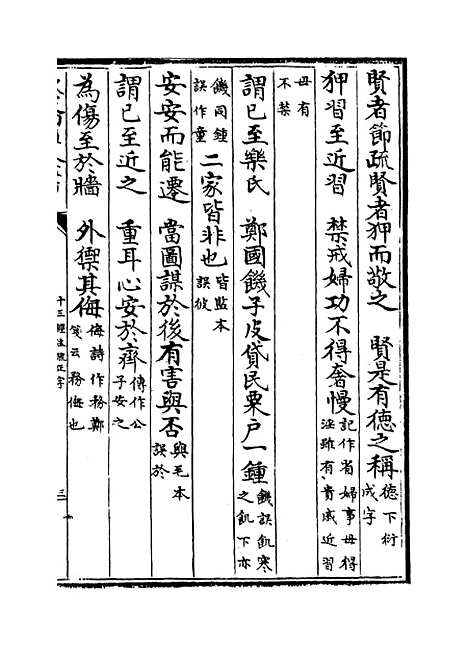 賢者節疏賢者狎而敬之　賢是有德之稱德下衍成字
狎習至近習　禁戒婦功不得奢慢記作省婦事毋得淫雖有貴戚近習
毋有不禁
謂已至樂氏　鄭國饑子皮貸民粟户一鍾饑誤飢寒之飢下亦
饑同鍾誤作童二家皆非也皆監本誤彼
安安而能遷　當圖謀於後有害與否與毛本誤於
謂已至近之　重耳心安於齊傳作公子安之
為傷至於牆　外禦其侮侮詩作務鄭箋云務侮也
十三經注疏正字　三